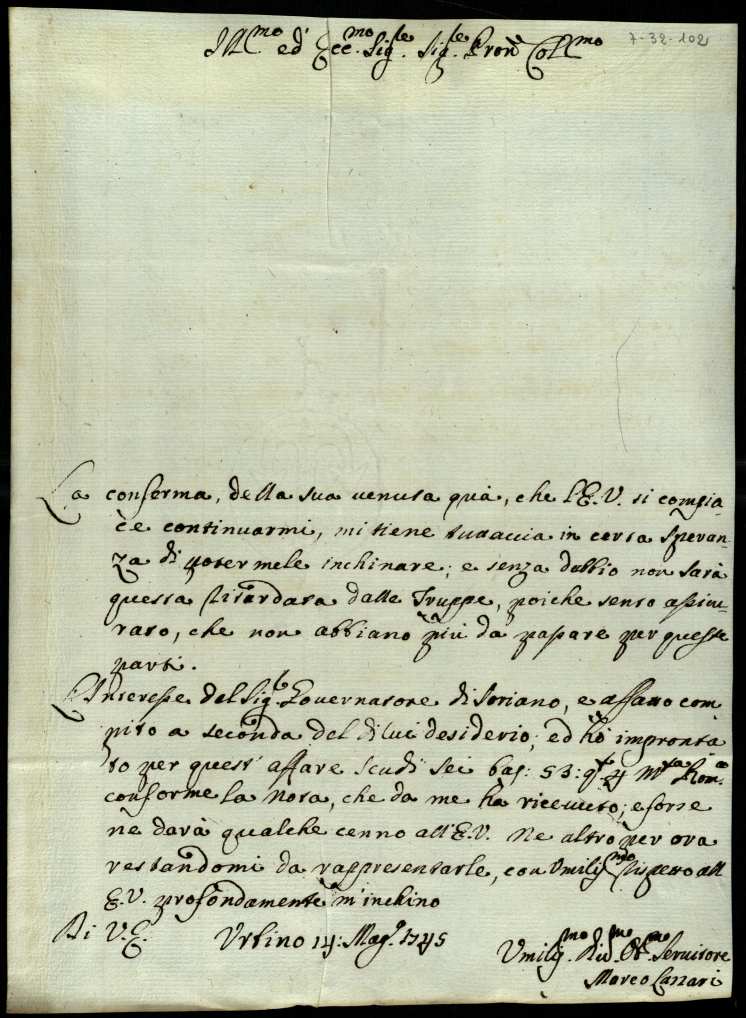 7-32-102
Ill.mo ed Ecc.mo Sig.re Sig.re Pron Coll.mo
La conferma, della sua venuta quà, che l'E.V. si compia-
ce continuarmi, mi tiene tuttavia in certa speran-
za di potermele inchinare; e senza dubbio non sarà
questa ritardata dalle Truppe, poiche sento assicu-
rato, che non abbiano più da passare per queste
parti.
L'Interesse del Sig.r Governatore di Soriano, e affatto com
pito a seconda del di lui desiderio; ed hò impronta
to per quest'affare scudi sei baj: 53: q.i 4 m.ta Rom.a
conforme la nota, che da me ha ricevuto; e forse
ne darà qualche cenno all'E.V. Ne altro per ora
restandomi da rappresentarle, con Umiliss.mo rispetto all
E.V. profondamente m'inchino
Di V.E. Urbino 14: Mag.o 1745
Umiliss.mo Servitore
Marco Lazzari